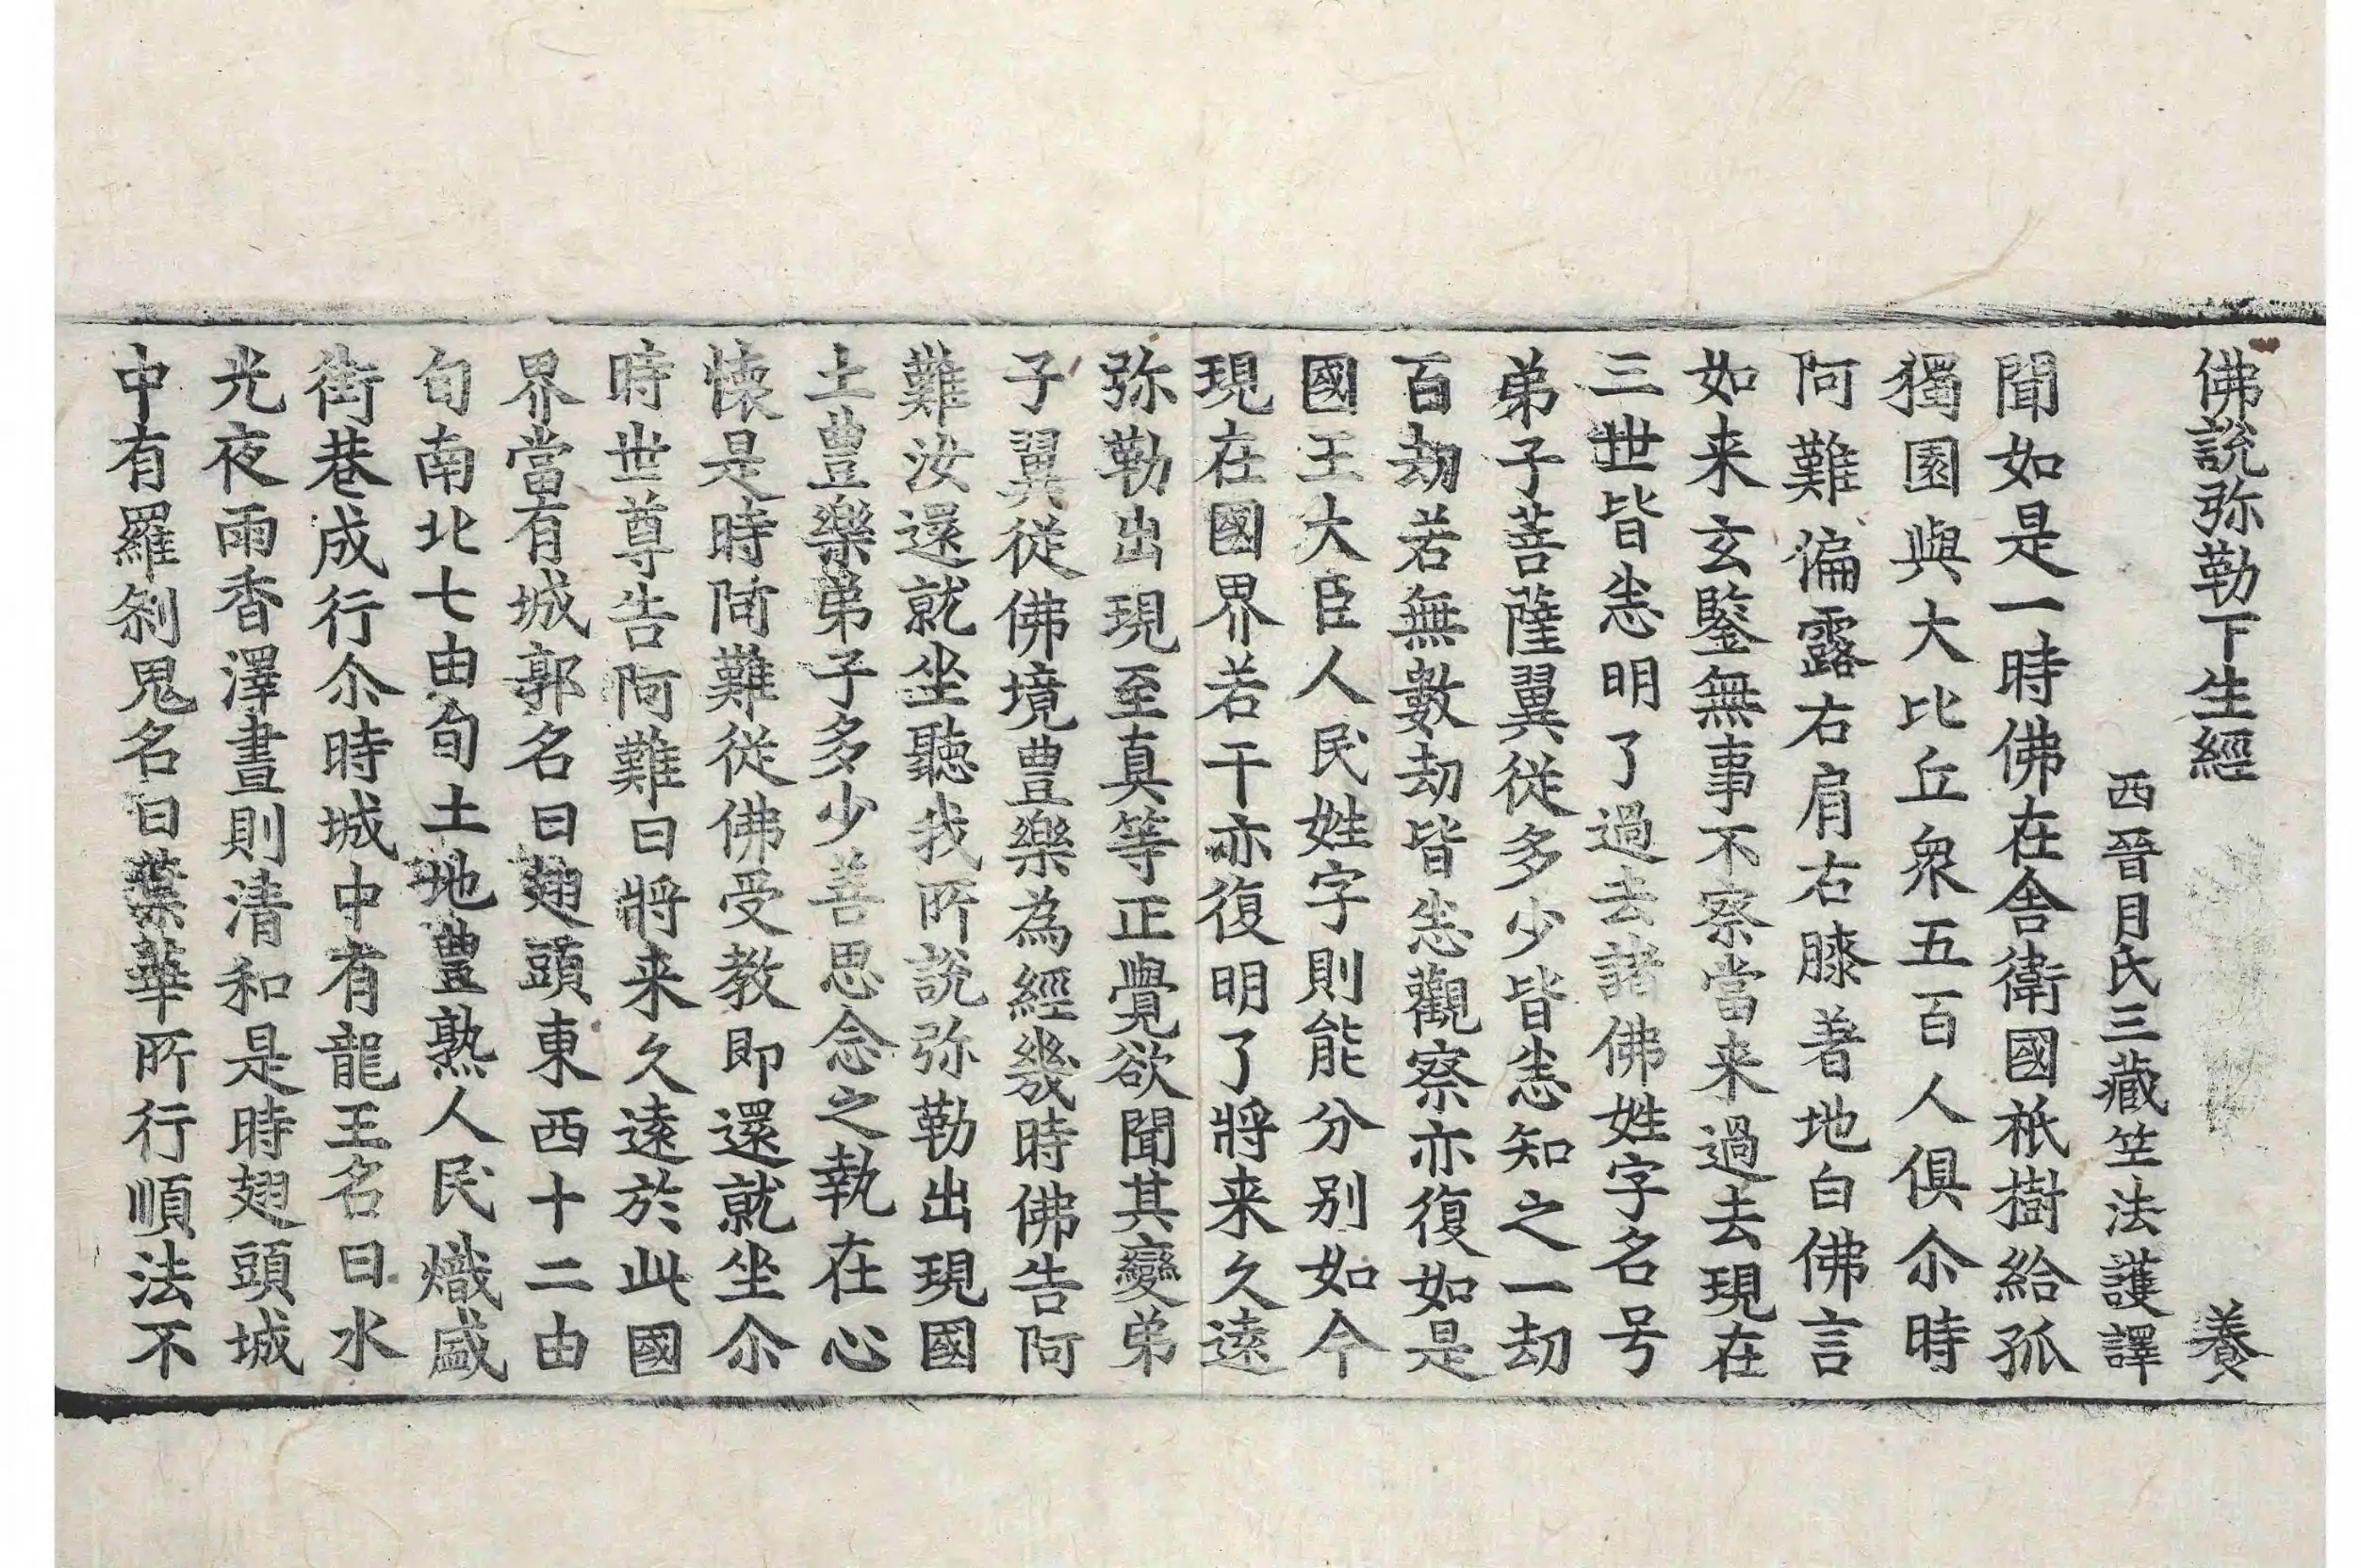 佛說弥勒下生經 養
西晉月氏三藏竺法護譯
聞如是一時佛在舍衛國祇樹給孤
獨園與大比丘衆五百人俱尒時
阿難偏露右肩右膝著地白佛言
如来玄鑒無事不察當来過去現在
三世皆悉明了過去諸佛姓字名号
弟子菩薩翼従多少皆悉知之一劫
百劫若無數劫皆悉觀察亦復如是
國王大臣人民姓字則能分别如今
現在國界若干亦復明了將来久遠
弥勒出現至真等正覺欲聞其變弟
子翼従佛境豊樂為經幾時佛告阿
難汝還就坐聽我所說弥勒出現國
土豊樂弟子多少善思念之執在心
懐是時阿難従佛受教即還就坐尒
時世尊告阿難曰將来久遠於此國
界當有城郭名曰翅頭東西十二由
旬南北七由旬土地豊熟人民熾盛
街巷成行尒時城中有龍王名曰水
光夜雨香澤晝則清和是時翅頭城
中有羅刹鬼名曰葉華所行順法不